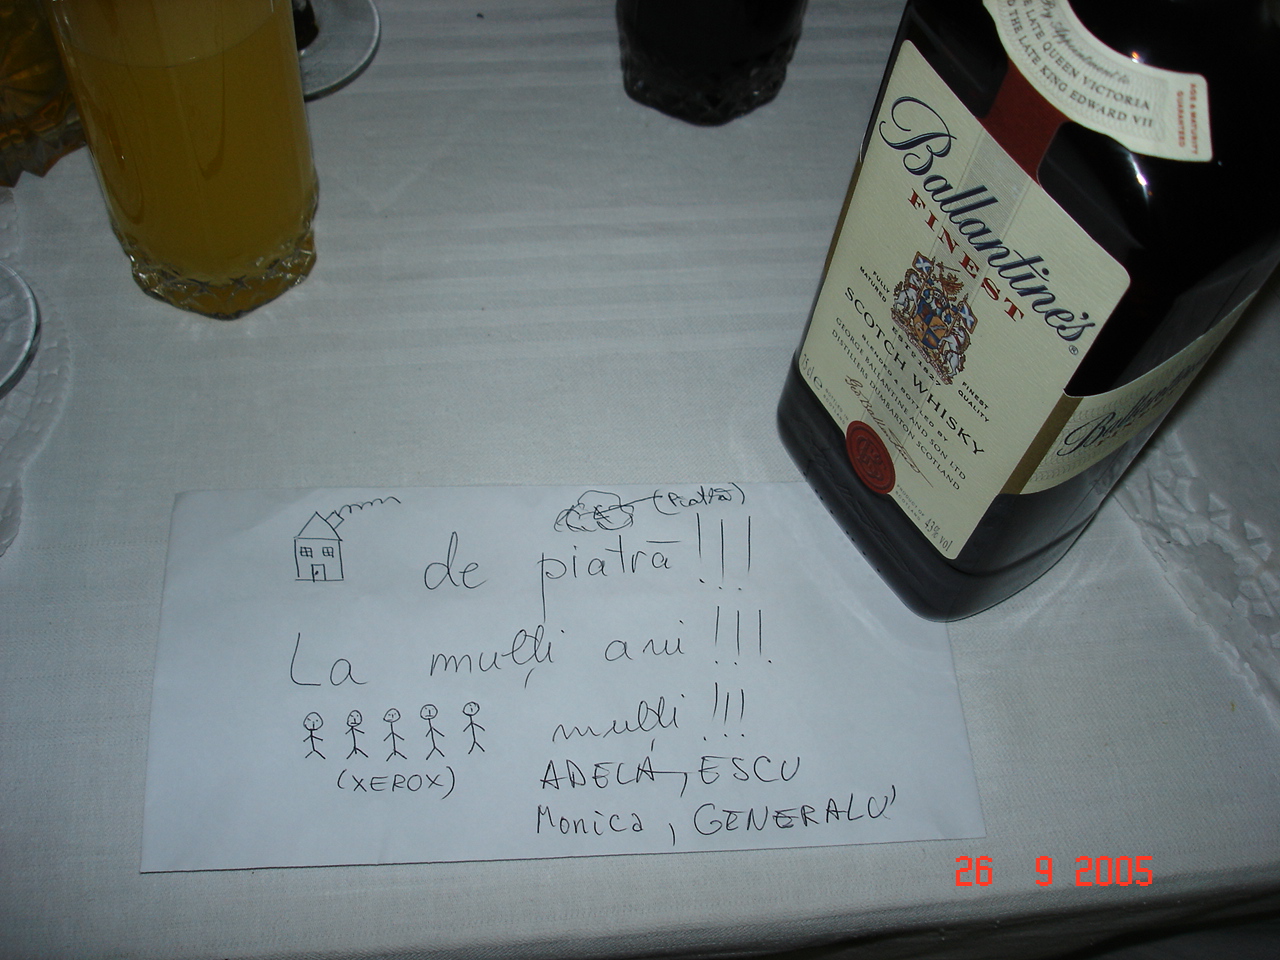 By Appointment to
THE LATE QUEEN VICTORIA
THE LATE KING EDWARD VII
AGE & MATURITY
GUARANTEED
Ballantine's®
FINEST
FULLY
MATURED
FINEST
QUALITY
ESTD 1827
SCOTCH WHISKY
BLENDED & BOTTLED BY
GEORGE BALLANTINE AND SON LTD
DISTILLERS DUMBARTON SCOTLAND
PRODUCT OF
SCOTLAND
43% vol
(Piatră)
de piatră!!!
La mulți ani!!!
mulți!!!
(XEROX)
ADELA, ESCU
Monica, GENERALU'
26 9 2005